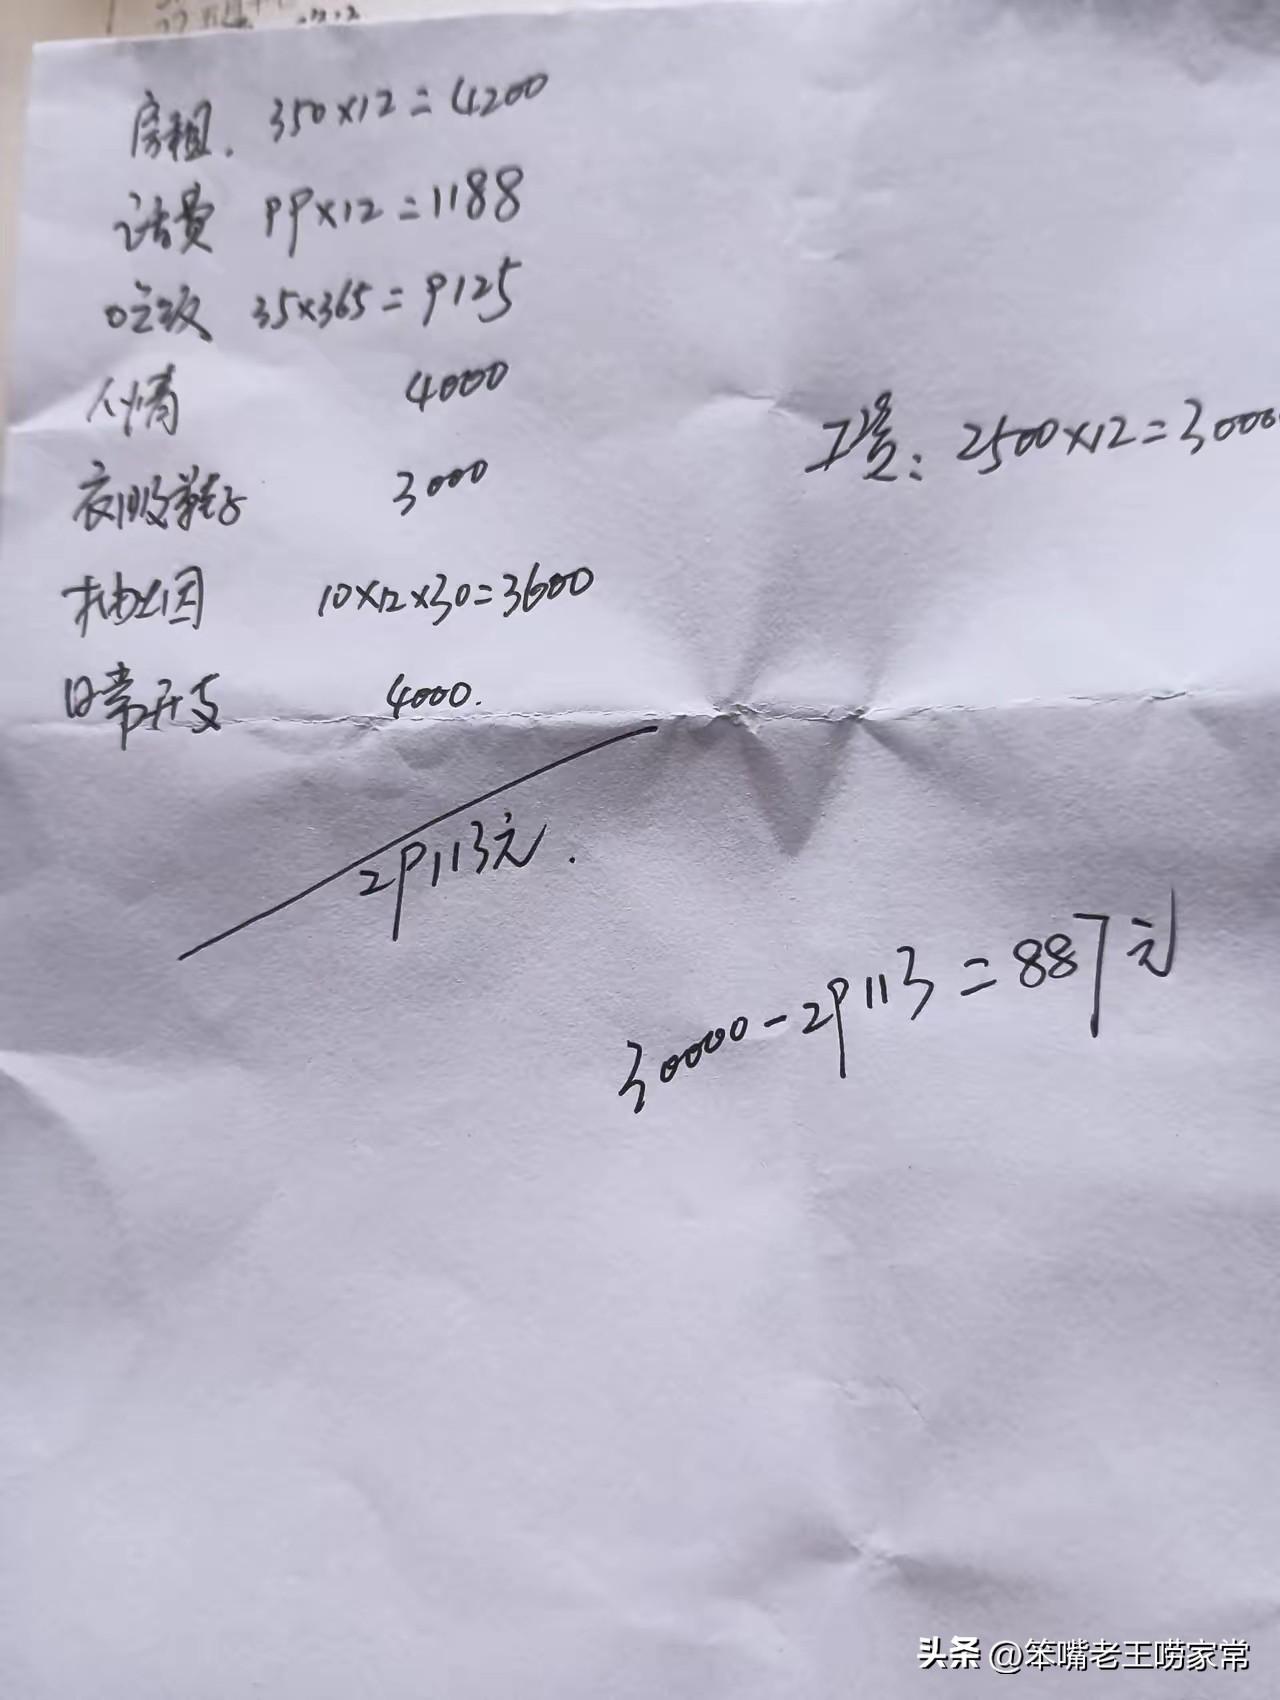 房租. 350×12=4200
话费 99×12=1188
吃饭 35×365=9125
人情 4000
衣服鞋子 3000
工资: 2500×12=30000
抽烟 10×12×30=3600
日常开支 4000.
29113元.
30000-29113=887元
头条 @笨嘴老王唠家常